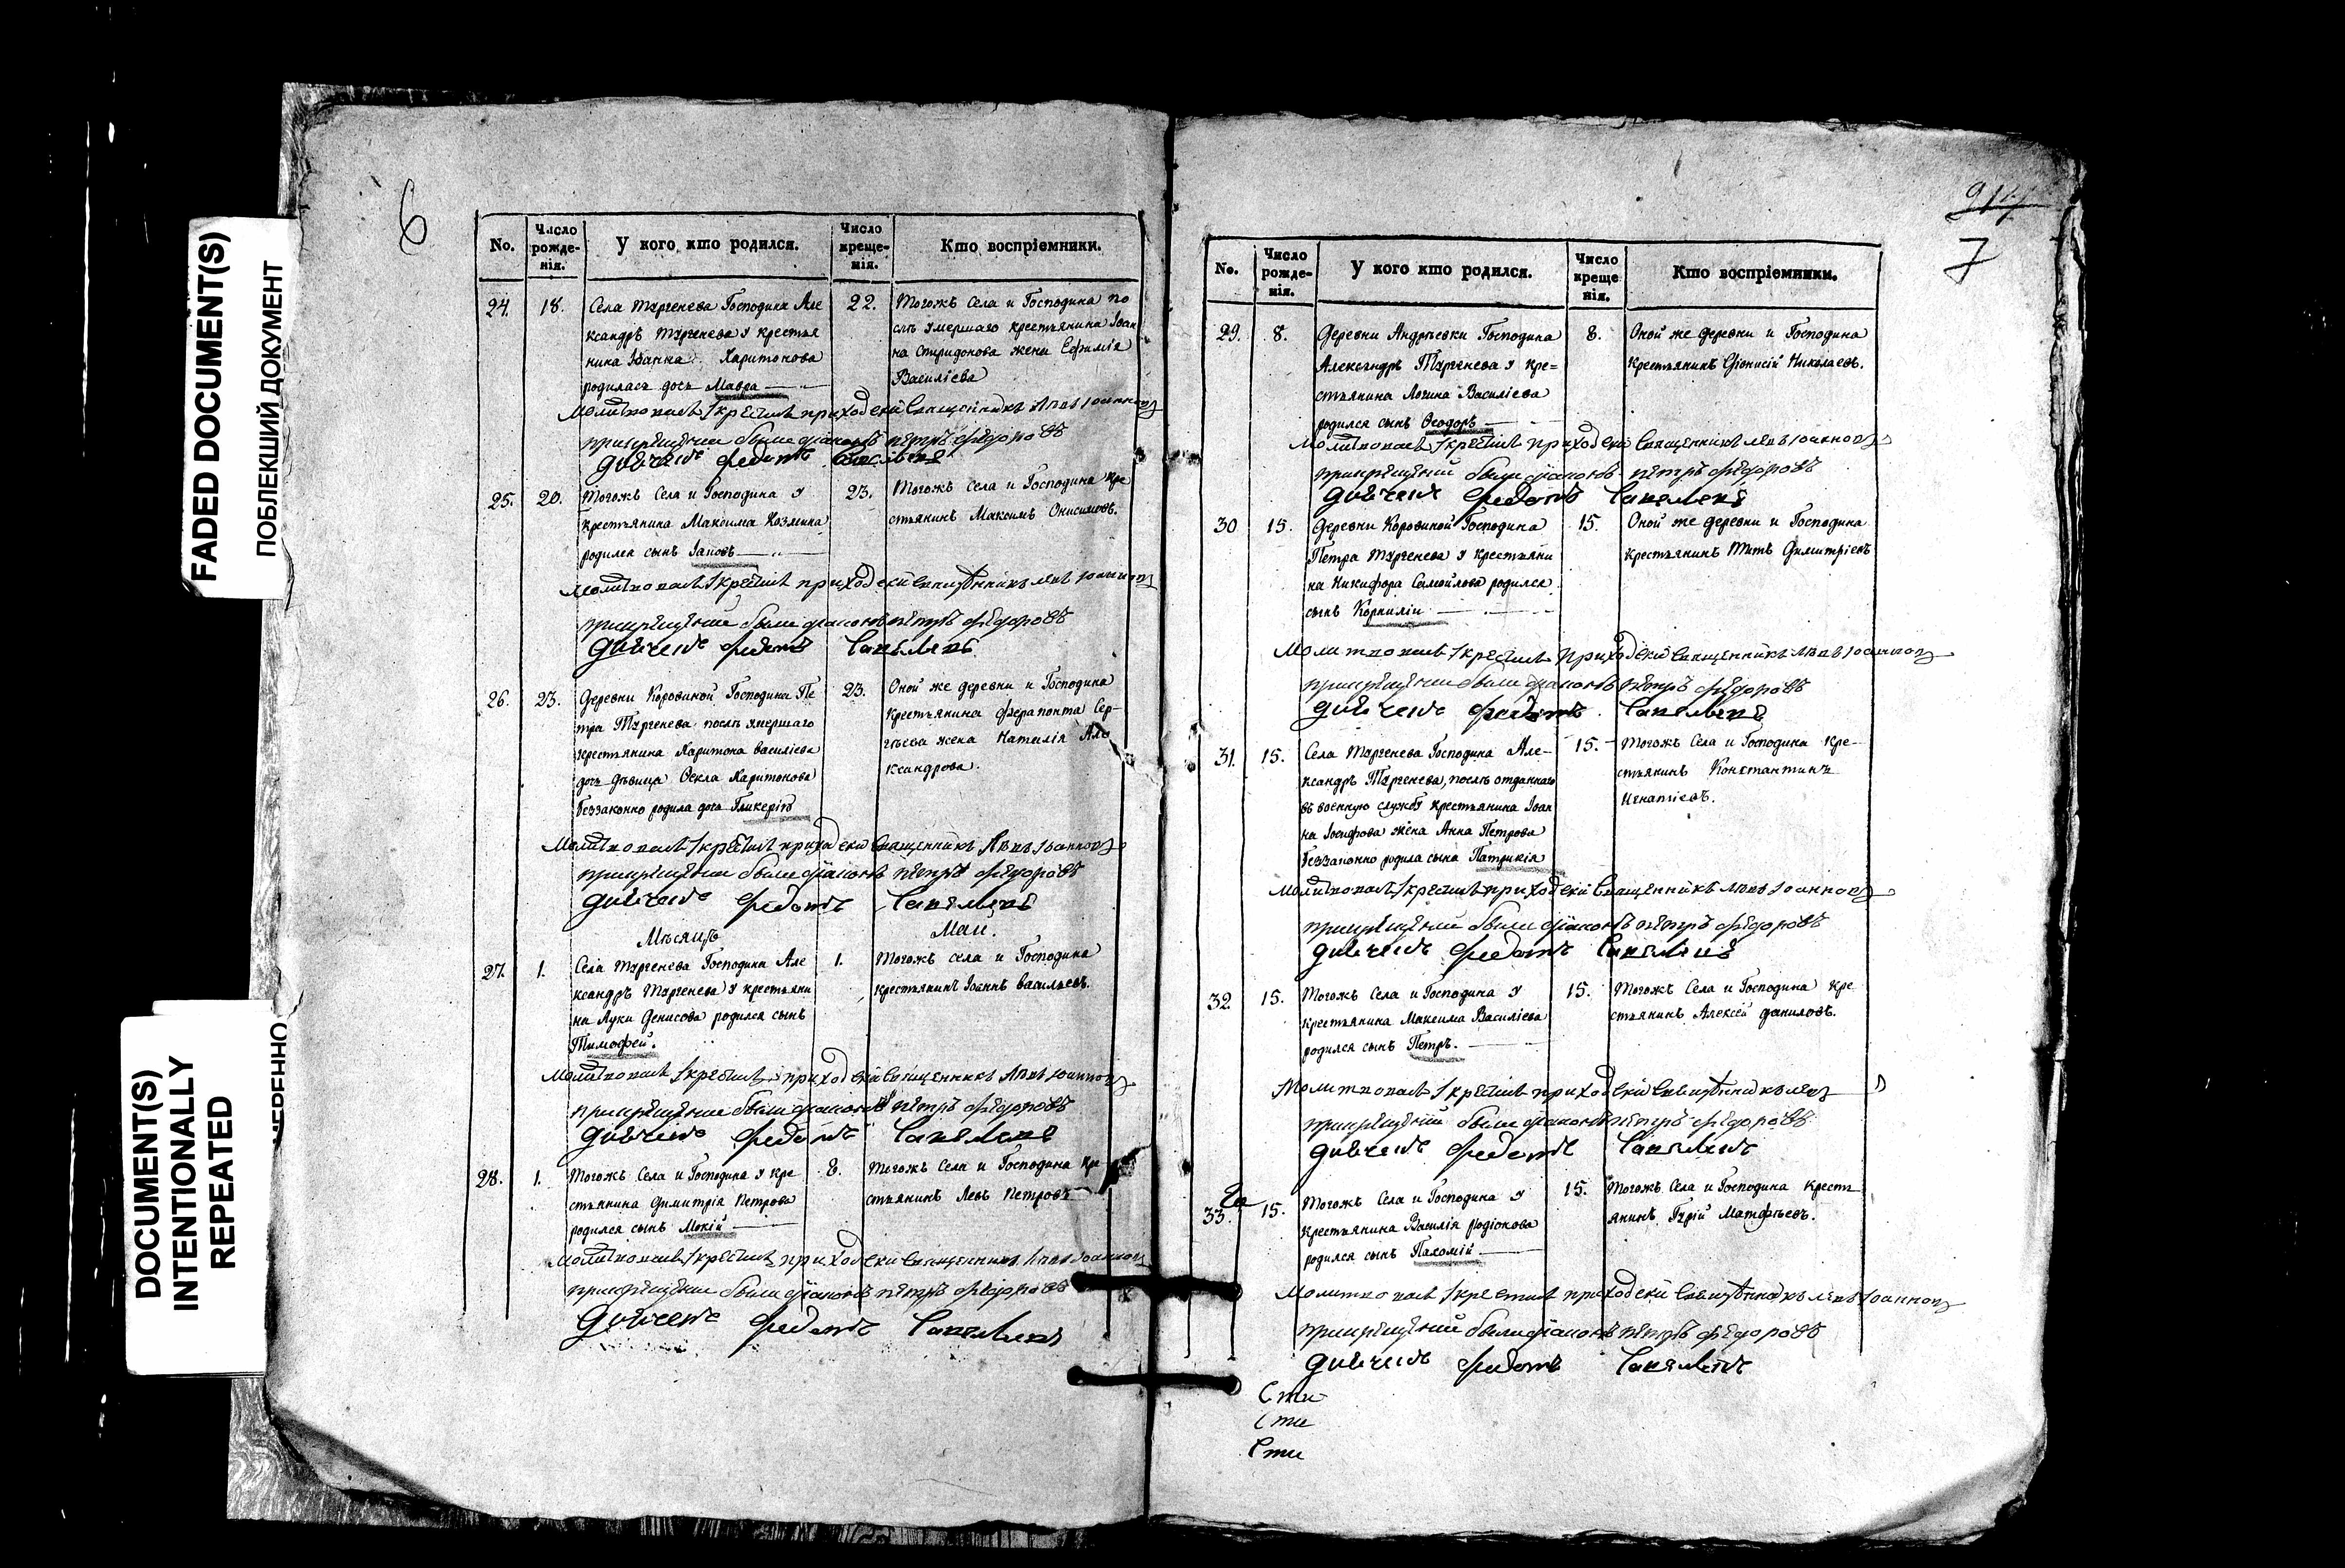 FADED DOCUMENT(S)
ПОБЛЕКШИЙ ДОКУМЕНТ
DOCUMENT(S)
INTENTIONALLY
REPEATED
6
No.
Число
рожде-
нія.
У кого кто родился.
Число
креще-
нія.
Кто воспріемники.
24.
18.
Села Тургенева Господина Але
ксандръ Тургенева у крестья
нина Ивана Харитонова
родилась дочь Мавра
22.
Тогожъ Села и Господина по
слѣ умершаго крестьянина Іоан
на Спиридонова жена Ефимія
Василіева
Молитвовалъ крестилъ приходскій священникъ Левъ Іоанновъ
прикрещеніи были діаконъ петръ федоровъ
дьячекъ федотъ
25.
20.
Тогожъ Села и Господина у
крестьянина Максима Козмина
родился сынъ Іаковъ
23.
Тогожъ Села и Господина кре
стьянинъ Максимъ Онисимовъ.
Молитвовалъ крестилъ приходскій священникъ левъ Іоанновъ
прикрещеніи были діаконъ петръ федоровъ
дьячекъ федотъ
26.
23.
Деревни Коровиной Господина Пе
тра Тургенева послѣ умершаго
крестьянина Харитона василіева
дочь дѣвица Ѳекла Харитонова
беззаконно родила дочь Гликерію
23.
Оной же деревни и Господина
крестьянина ферапонта Сер-
гѣева жена Наталія Але
ксандрова.
Молитвовалъ крестилъ приходскій священникъ Левъ Іоанновъ
прикрещеніи были діаконъ петръ федоровъ
дьячекъ федотъ
Мѣсяцъ
Маи.
27.
1.
Села Тургенева Господина Але
ксандръ Тургенева у крестьяни
на Луки Денисова родился сынъ
Тимофей.
1.
Тогожъ села и Господина
крестьянинъ Іоаннъ васильевъ.
Молитвовалъ крестилъ приходскій священникъ Левъ Іоанновъ
прикрещеніи были діаконъ петръ федоровъ
дьячекъ федотъ
28.
1.
Тогожъ Села и Господина у кре
стьянина Димитрія Петрова
родился сынъ Мокій
8.
Тогожъ Села и Господина кре
стьянинъ Левъ Петровъ
Молитвовалъ крестилъ приходскій священникъ Левъ Іоанновъ
прикрещеніи были діаконъ петръ федоровъ
дьячекъ федотъ
7
No.
Число
рожде-
нія.
У кого кто родился.
Число
креще
нія.
Кто воспріемники.
29.
8.
Деревни Андрѣевки Господина
Александръ Тургенева у кре=
стьянина Логина Василіева
родился сынъ Ѳеодоръ
8.
Оной же деревни и Господина
крестьянинъ Діонисій Николаевъ.
Молитвовалъ крестилъ приходскій священникъ левъ Іоанновъ
прикрещеніи были діаконъ петръ федоровъ
дьячекъ федотъ
30
15.
Деревни Коровиной Господина
Петра Тургенева у крестьяни
на Никифора Самойлова родился
сынъ Корниліи
15.
Оной же деревни и Господина
крестьянинъ Титъ Димитріевъ
Молитвовалъ крестилъ приходскій священникъ левъ Іоанновъ
прикрещеніи были діаконъ петръ федоровъ
дьячекъ федотъ
31.
15.
Села Тургенева Господина Але-
ксандръ Тургенева, послѣ отданнаго
въ военную службу крестьянина Іоан
на Іосифова жена Анна Петрова
беззаконно родила сына Патрикія
15.
Тогожъ Села и Господина кре-
стьянинъ Константинъ
Игнатіевъ.
Молитвовалъ крестилъ приходскій священникъ левъ Іоанновъ
прикрещеніи были діаконъ петръ федоровъ
дьячекъ федотъ
32
15.
Тогожъ Села и Господина у
крестьянина Максима Василіева
родился сынъ Петръ.
15.
Тогожъ Села и Господина кре
стьянинъ Алексей даниловъ.
Молитвовалъ крестилъ приходскій священникъ левъ
прикрещеніи были діаконъ петръ федоровъ
дьячекъ федотъ
33.
15.
Тогожъ Села и Господина у
крестьянина Василія родіонова
родился сынъ Пахомій
15.
Тогожъ Села и Господина кресть
янинъ Гурій Матфѣевъ.
Молитвовалъ крестилъ приходскій священникъ левъ Іоанновъ
прикрещеніи были діаконъ петръ федоровъ
дьячекъ федотъ
Сти
Сти
Сти